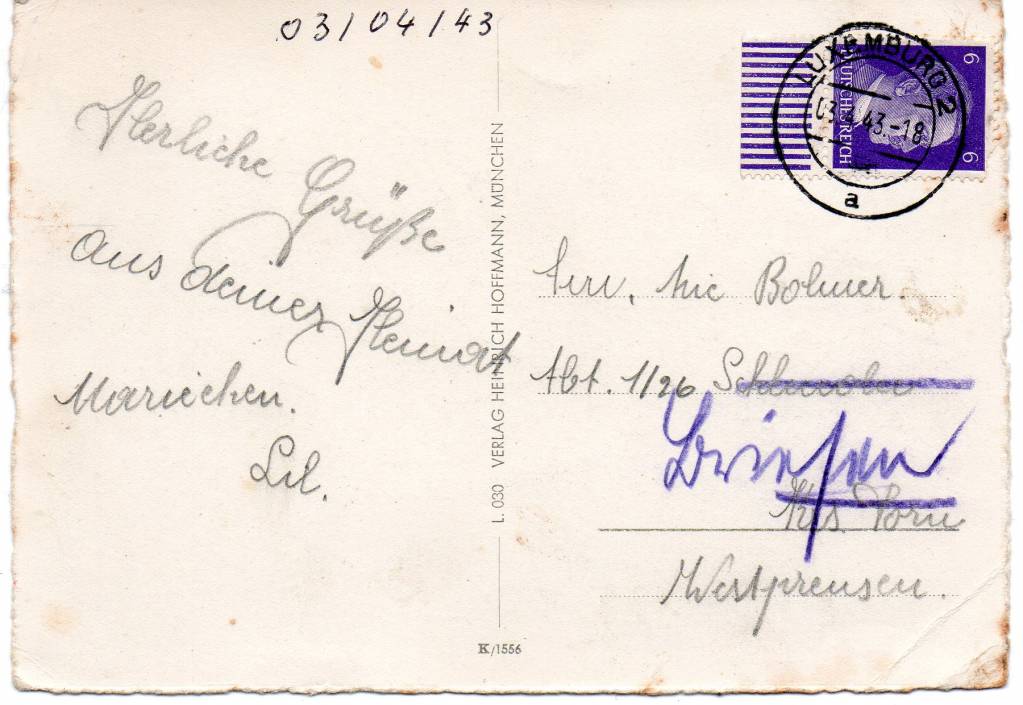 03/04/43
Herliche
Grüße
aus deiner Heimat
Mariechen.
Lil.
L. 030 VERLAG HEINRICH HOFFMANN, MÜNCHEN
K/1556
LUXEMBURG 2
03.4.43.-18
a
DEUTSCHES REICH
6
6
Nic Bolmer.
Abt. 1/26
Briesen
Krs.
Westpreusen.